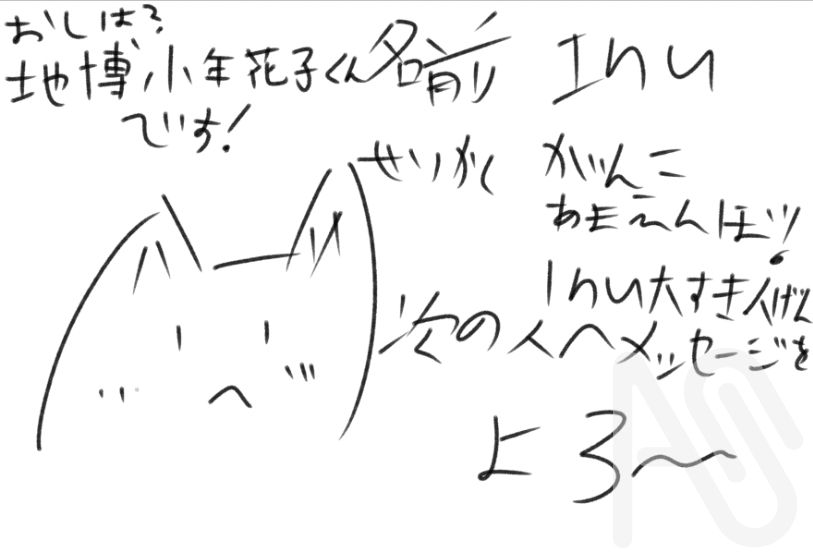 おしは?
地博小年花子くん
です!
名前 Inu
せいかく がんこ
あまえんぼッ!
Inu大すき人げん
次の人へメッセージを
よろ〜